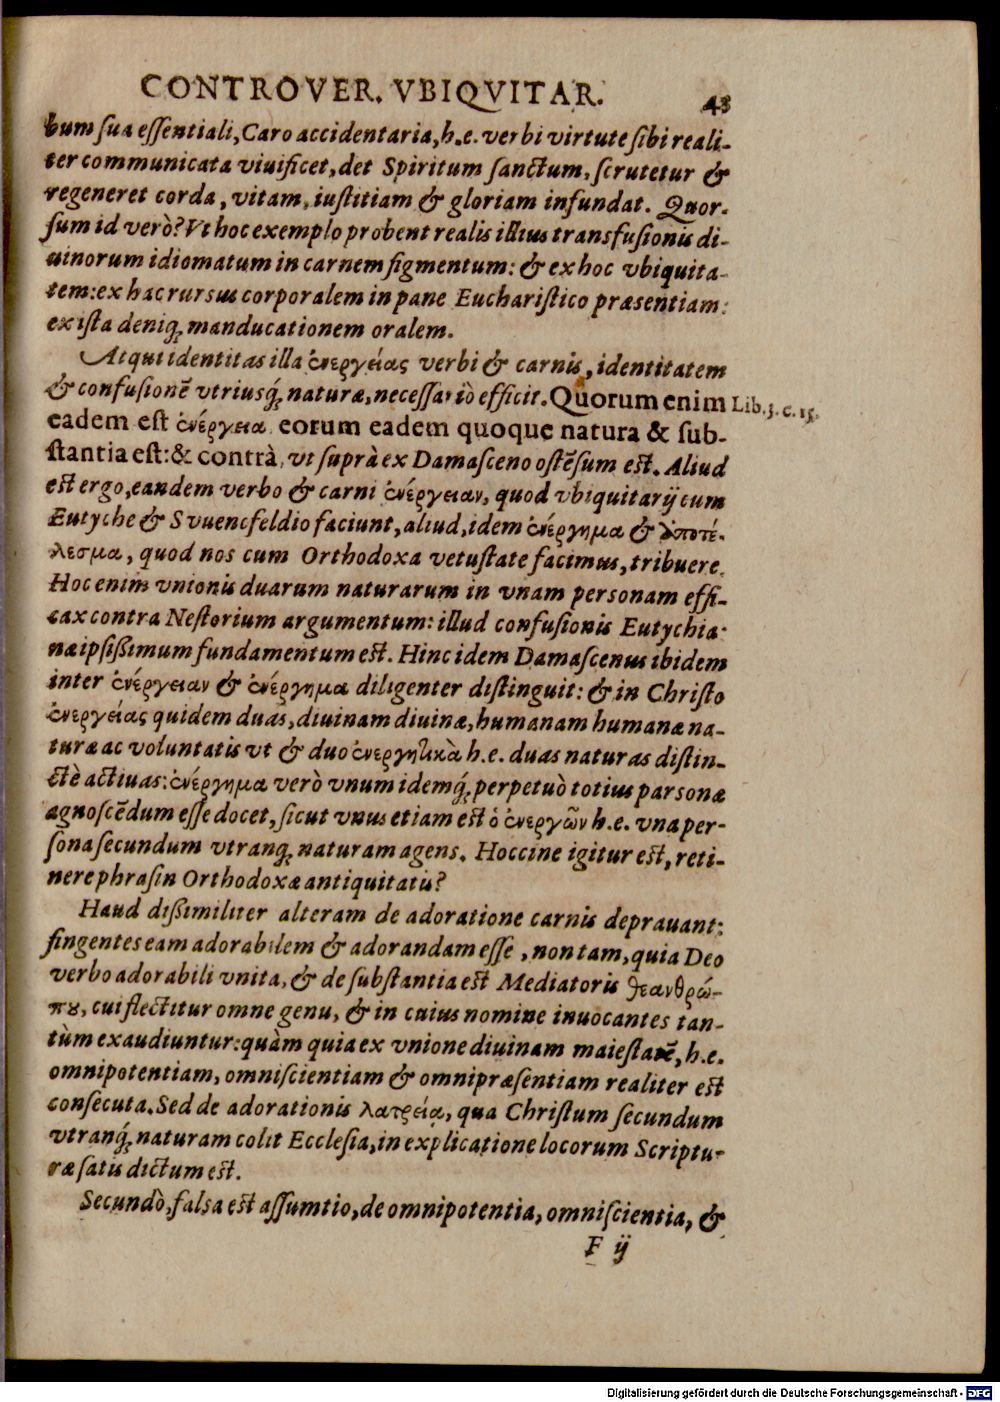 CONTROVER. VBIQVITAR. 43
bum sua essentiali, Caro accidentaria, h.e. verbi virtute sibi reali-
ter communicata viuificet, det Spiritum sanctum, scrutetur &
regeneret corda, vitam, iustitiam & gloriam infundat. Quor-
sum id verò? Vt hoc exemplo probent realis illius transfusionis di-
uinorum idiomatum in carnem figmentum: & ex hoc vbiquita-
tem: ex hac rursus corporalem in pane Eucharistico præsentiam:
ex ista deniq; manducationem oralem.
Atqui identitas illa ἐνεργείας verbi & carnis, identitatem
& confusionē vtriusq; naturæ, necessariò efficit. Quorum enim Lib.3.c.15.
eadem est ἐνέργεια eorum eadem quoque natura & sub-
stantia est: & contrà, vt suprà ex Damasceno ostēsum est. Aliud
est ergo, eandem verbo & carni ἐνέργειαν, quod vbiquitarij cum
Eutyche & Svuencfeldio faciunt, aliud, idem ἐνέργημα & ἀποτέ-
λεσμα, quod nos cum Orthodoxa vetustate facimus, tribuere.
Hoc enim vnionis duarum naturarum in vnam personam effi-
cax contra Nestorium argumentum: illud confusionis Eutychia-
næ ipsißimum fundamentum est. Hinc idem Damascenus ibidem
inter ἐνέργειαν & ἐνέργημα diligenter distinguit: & in Christo
ἐνεργείας quidem duas, diuinam diuinæ, humanam humanæ na-
turæ ac voluntatis vt & duo ἐνεργητικὰ h.e. duas naturas distin-
ctè actiuas: ἐνέργημα verò vnum idemq; perpetuò totius parsonæ
agnoscēdum esse docet, sicut vnus etiam est ὁ ἐνεργῶν h.e. vna per-
sona secundum vtranq; naturam agens. Hoccine igitur est, reti-
nere phrasin Orthodoxæ antiquitatis?
Haud dißimiliter alteram de adoratione carnis deprauant:
fingentes eam adorabilem & adorandam esse, non tam, quia Deo
verbo adorabili vnita, & de substantia est Mediatoris θεανθρώ-
που, cui flectitur omne genu, & in cuius nomine inuocantes tan-
tùm exaudiuntur: quàm quia ex vnione diuinam maiestatē, h.e.
omnipotentiam, omniscientiam & omnipræsentiam realiter est
consecuta. Sed de adorationis λατρεία, qua Christum secundum
vtranq; naturam colit Ecclesia, in explicatione locorum Scriptu-
ræ satis dictum est.
Secundò, falsa est assumtio, de omnipotentia, omniscientia, &
F ij
Digitalisierung gefördert durch die Deutsche Forschungsgemeinschaft - DFG